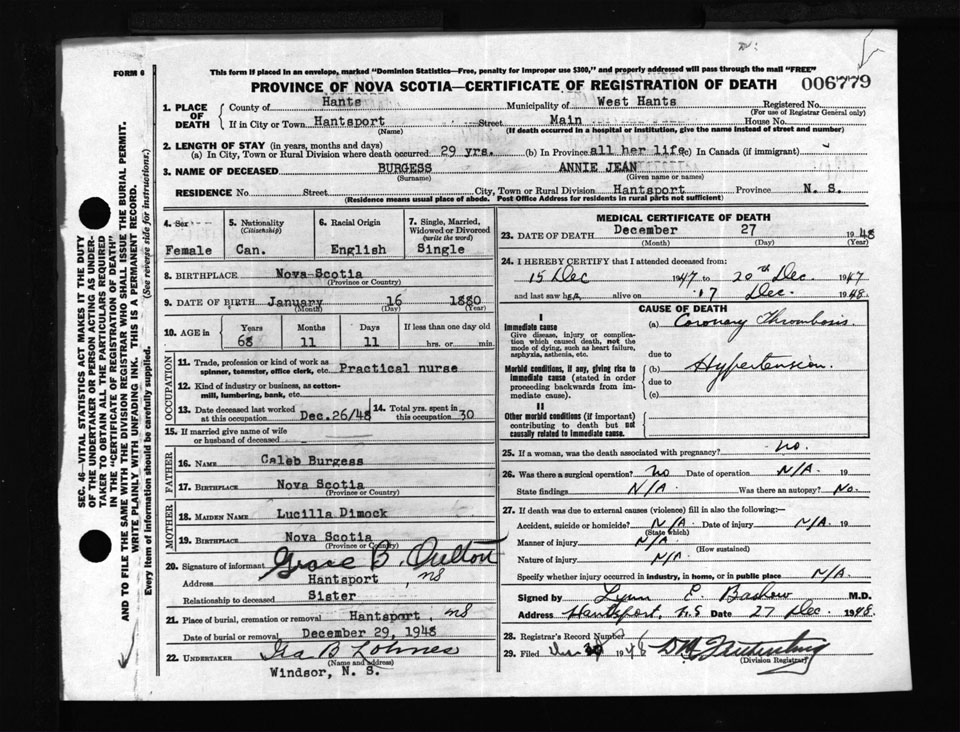 FORM 6
This form if placed in an envelope, marked "Dominion Statistics—Free, penalty for improper use $300," and properly addressed will pass through the mail "FREE"
PROVINCE OF NOVA SCOTIA—CERTIFICATE OF REGISTRATION OF DEATH 006779
SEC. 46—VITAL STATISTICS ACT MAKES IT THE DUTY
OF THE UNDERTAKER OR PERSON ACTING AS UNDER-
TAKER TO OBTAIN ALL THE PARTICULARS REQUIRED
IN THE "CERTIFICATE OF REGISTRATION OF DEATH"
AND TO FILE THE SAME WITH THE DIVISION REGISTRAR WHO SHALL ISSUE THE BURIAL PERMIT.
WRITE PLAINLY WITH UNFADING INK. THIS IS A PERMANENT RECORD.
Every item of information should be carefully supplied. (See reverse side for instructions.)
1. PLACE OF DEATH
County of Hants Municipality of West Hants Registered No.
(For use of Registrar General only)
If in City or Town Hantsport Street Main House No.
(Name) (If death occurred in a hospital or institution, give the name instead of street and number)
2. LENGTH OF STAY (in years, months and days)
(a) In City, Town or Rural Division where death occurred 29 yrs. (b) In Province all her life (c) In Canada (if immigrant)
3. NAME OF DECEASED BURGESS ANNIE JEAN
(Surname) (Given name or names)
RESIDENCE No. Street City, Town or Rural Division Hantsport Province N. S.
(Residence means usual place of abode. Post Office Address for residents in rural parts not sufficient)
4. Sex
Female
5. Nationality
(Citizenship)
Can.
6. Racial Origin
English
7. Single, Married,
Widowed or Divorced
(write the word)
Single
8. BIRTHPLACE Nova Scotia
(Province or Country)
9. DATE OF BIRTH January 16 1880
(Month) (Day) (Year)
10. AGE in Years Months Days If less than one day old
68 11 11 hrs. or min.
OCCUPATION
11. Trade, profession or kind of work as
spinner, teamster, office clerk, etc. Practical nurse
12. Kind of industry or business, as cotton-
mill, lumbering, bank, etc.
13. Date deceased last worked
at this occupation Dec.26/48
14. Total yrs. spent in
this occupation 30
15. If married give name of wife
or husband of deceased
FATHER
16. NAME Caleb Burgess
17. BIRTHPLACE Nova Scotia
(Province or Country)
MOTHER
18. MAIDEN NAME Lucilla Dimock
19. BIRTHPLACE Nova Scotia
(Province or Country)
20. Signature of informant Grace B. Oulton
Address Hantsport NS
Relationship to deceased Sister
21. Place of burial, cremation or removal Hantsport, NS
Date of burial or removal December 29, 1948
22. UNDERTAKER Ira B Lohnes
(Name and address)
Windsor, N. S.
MEDICAL CERTIFICATE OF DEATH
23. DATE OF DEATH December 27 1948
(Month) (Day) (Year)
24. I HEREBY CERTIFY that I attended deceased from:
15 Dec 1947 to 20th Dec. 1947
and last saw her alive on 17 Dec. 1948.
CAUSE OF DEATH
I
Immediate cause
Give disease, injury or complica-
tion which caused death, not the
mode of dying, such as heart failure,
asphyxia, asthenia, etc.
(a) Coronary Thrombosis.
due to
Morbid conditions, if any, giving rise to
immediate cause (stated in order
proceeding backwards from im-
mediate cause).
(b) Hypertension.
due to
(c)
II
Other morbid conditions (if important)
contributing to death but not
causally related to immediate cause.
25. If a woman, was the death associated with pregnancy? no.
26. Was there a surgical operation? No Date of operation N/A. 19
State findings N/A. Was there an autopsy? No.
27. If death was due to external causes (violence) fill in also the following:—
Accident, suicide or homicide? N/A. Date of injury N/A. 19
(State which)
Manner of injury N/A.
(How sustained)
Nature of injury N/A.
Specify whether injury occurred in industry, in home, or in public place N/A.
Signed by Lynn E. Bashow M.D.
Address Hantsport, N.S Date 27 Dec. 1948.
28. Registrar's Record Number 6
29. Filed 1948
(Division Registrar)